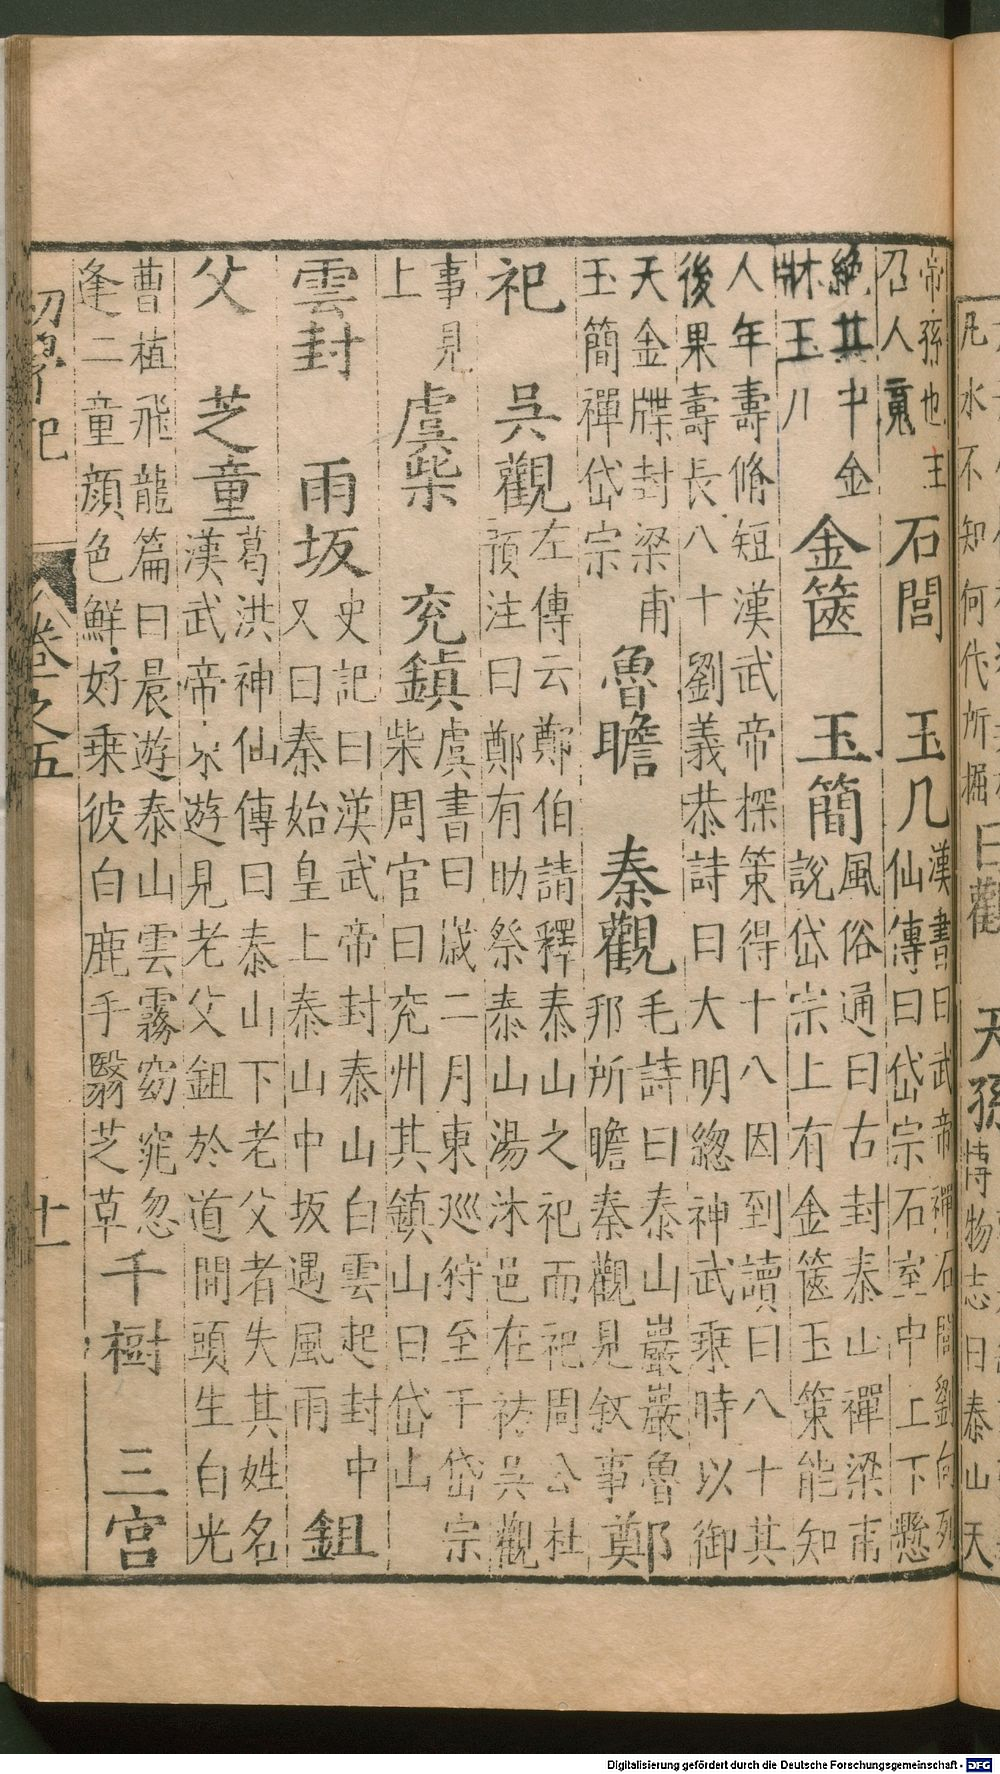 凡水不知何代所掘
日觀 天孫
博物志曰泰山天
帝孫也主
召人䰟
石閭 玉几
漢書曰武帝禪石閭劉向列
仙傳曰岱宗石室中上下懸
絕其中金
牀玉几
金篋 玉簡
風俗通曰古封泰山禪梁甫
說岱宗上有金篋玉策能知
人年壽脩短漢武帝探策得十八因到讀曰八十其
後果壽長八十劉義恭詩曰大明緫神武乘時以御
天金牒封梁甫
玉簡禪岱宗
魯瞻 秦觀
毛詩曰泰山巖巖魯
邦所瞻秦觀見叙事
鄭
祀 吳觀
左傳云鄭伯請釋泰山之祀而祀周公杜
預注曰鄭有助祭泰山湯沐邑在祊吳觀
事見
上
虞柴 兖鎮
虞書曰歲二月東巡狩至于岱宗
柴周官曰兖州其鎮山曰岱山
雲封 雨坂
史記曰漢武帝封泰山白雲起封中
又曰秦始皇上泰山中坂遇風雨
鉏
父 芝童
葛洪神仙傳曰泰山下老父者失其姓名
漢武帝東遊見老父鉏於道間頭生白光
曹植飛龍篇曰晨遊泰山雲霧窈窕忽
逢二童顔色鮮好乘彼白鹿手翳芝草
千樹 三宮
初學記 卷之五 十一
Digitalisierung gefördert durch die Deutsche Forschungsgemeinschaft - DFG